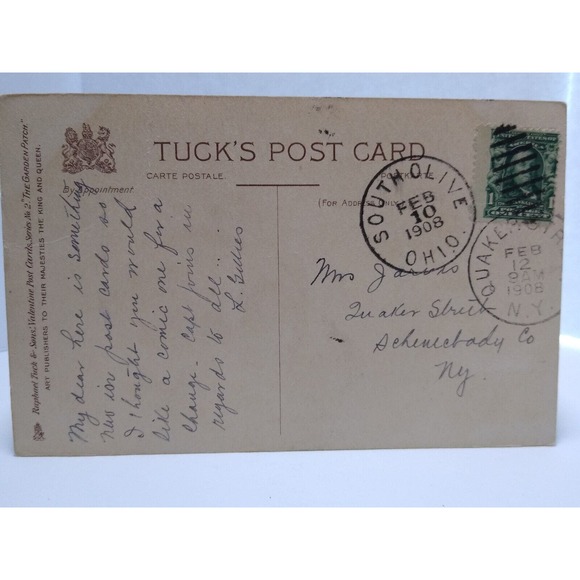 Raphael Tuck & Sons' Valentine Post Cards, Series No 2, "THE GARDEN PATCH."
ART PUBLISHERS TO THEIR MAJESTIES THE KING AND QUEEN.
By Appointment.
TUCK'S POST CARD
CARTE POSTALE
POSTKARTE
(FOR ADDRESS ONLY)
My dear here is something
new in post cards so
I thought you would
like a comic one for a
change. Capt joins in
regards to all..
L. Gillies
SOUTH OLIVE
FEB
10
1908
OHIO.
QUAKER STR
FEB
12
9 AM
1908
N.Y.
1
1
Mrs Jarvis
Quaker Street
Schenectady Co
Ny.